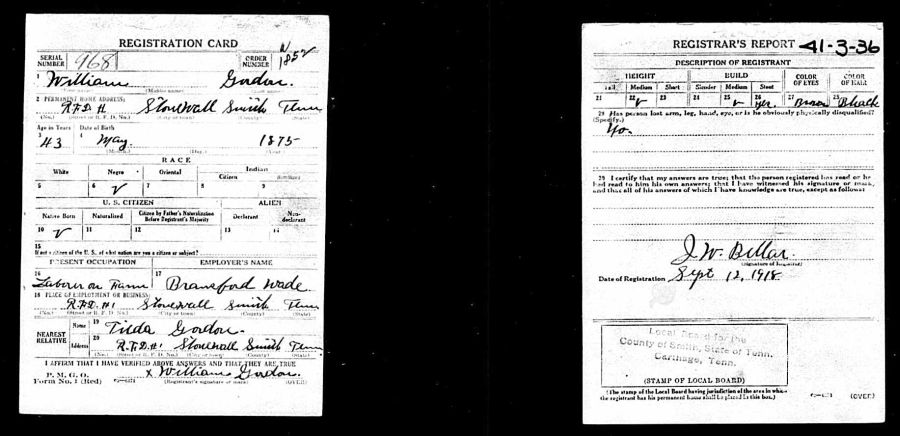 REGISTRATION CARD
SERIAL NUMBER 968 ORDER NUMBER
1 William Gordon.
2 PERMANENT HOME ADDRESS:
R.F.D. #1 Stonewall Smith Tenn
(No.) (Street or R. F. D. No.) (City or town) (County) (State)
Age in Years Date of Birth
3 43 4 May. 1875
(Month.) (Day.) (Year.)
RACE
White Negro Oriental Indian
Citizen Noncitizen
5 6 ✓ 7 8 9
U. S. CITIZEN ALIEN
Native Born Naturalized Citizen by Father's Naturalization Before Registrant's Majority Declarant Non-declarant
10 ✓ 11 12 13 14
15
If not a citizen of the U. S., of what nation are you a citizen or subject?
PRESENT OCCUPATION EMPLOYER'S NAME
16 17
Laborer on Farm Bransford Wade.
18 PLACE OF EMPLOYMENT OR BUSINESS:
R.F.D. #1 Stonewall Smith Tenn
(No.) (Street or R. F. D. No.) (City or town) (County) (State)
NEAREST RELATIVE
Name 19 Tilda Gordon.
Address 20 R.F.D. #1 Stonewall Smith Tenn
(No.) (Street or R. F. D. No.) (City or town) (County) (State)
I AFFIRM THAT I HAVE VERIFIED ABOVE ANSWERS AND THAT THEY ARE TRUE
P. M. G. O.
Form No. 1 (Red) x William Gordon.
(Registrant's signature or mark) (OVER)
REGISTRAR'S REPORT 41-3-36
DESCRIPTION OF REGISTRANT
HEIGHT BUILD COLOR OF EYES COLOR OF HAIR
Tall Medium Short Slender Medium Stout
21 22 ✓ 23 24 25 ✓ 26 yes. 27 Brown 28 Black
29 Has person lost arm, leg, hand, eye, or is he obviously physically disqualified?
(Specify.)
No.
30 I certify that my answers are true; that the person registered has read or has
had read to him his own answers; that I have witnessed his signature or mark,
and that all of his answers of which I have knowledge are true, except as follows:
J. W.
(Signature of Registrar)
Date of Registration Sept 12, 1918
Local Board for the
County of Smith, State of Tenn.
Carthage, Tenn.
(STAMP OF LOCAL BOARD)
(The stamp of the Local Board having jurisdiction of the area in which
the registrant has his permanent home shall be placed in this box.)
(OVER)